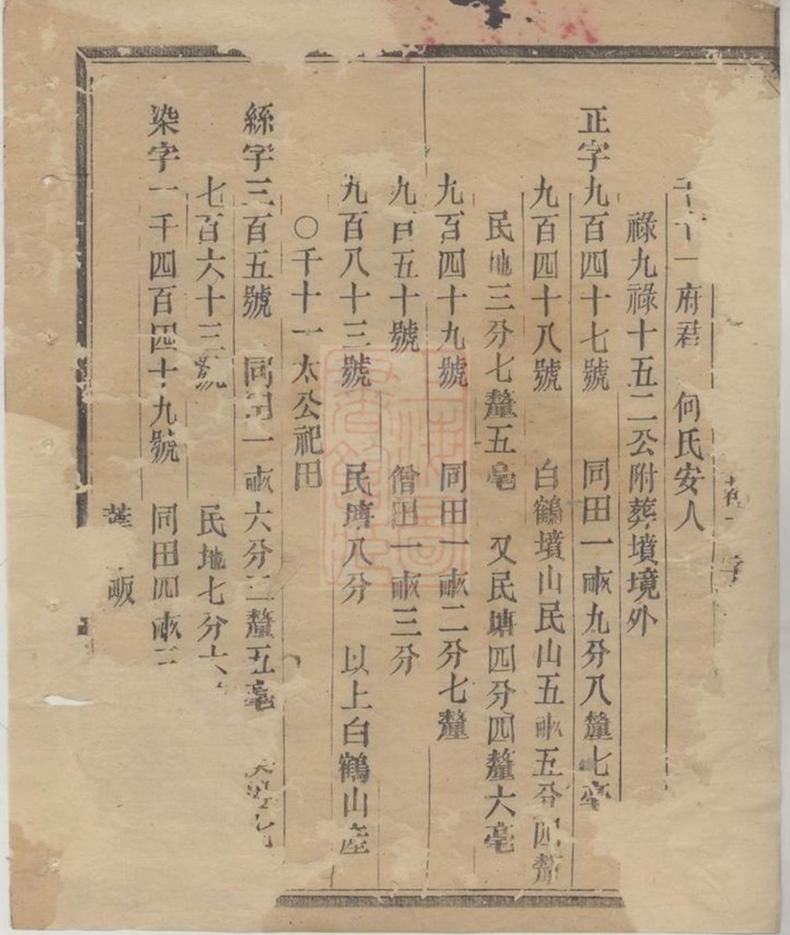 十一府君 何氏安人
祿九祿十五二公附葬墳境外
正字九百四十七號 同田一畝九分八釐七毫
九百四十八號 白鶴墳山民山五畝五分四釐
民地三分七釐五毫 又民塘四分四釐六毫
九百四十九號 同田一畝二分七釐
九百五十號 僧田一畝三分
九百八十三號 民塘八分 以上白鶴山產
〇千十一太公祀田
絲字三百五號 同田一畝六分三釐五毫
七百六十三號 民地七分六
染字一千四百四十九號 同田四畝三
畈